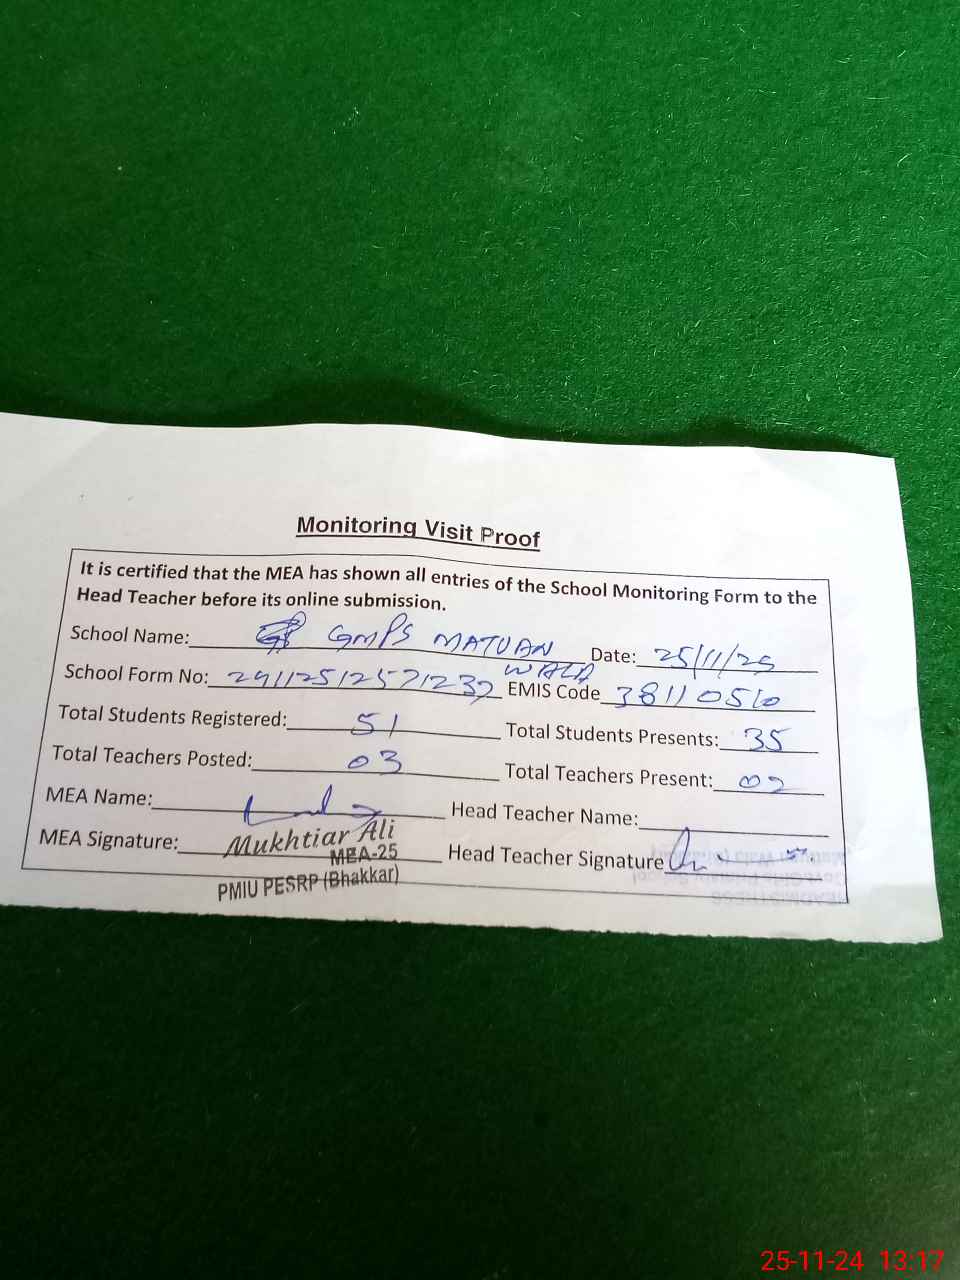 Monitoring Visit Proof
It is certified that the MEA has shown all entries of the School Monitoring Form to the
Head Teacher before its online submission.
School Name: GMPS MATUAN WALA Date: 25/11/25
School Form No: 29112512571232 EMIS Code 38110510
Total Students Registered: 51 Total Students Presents: 35
Total Teachers Posted: 03 Total Teachers Present: 02
MEA Name: Head Teacher Name:
MEA Signature: Mukhtiar Ali Head Teacher Signature
MEA-25
PMIU PESRP (Bhakkar)
25-11-24 13:17